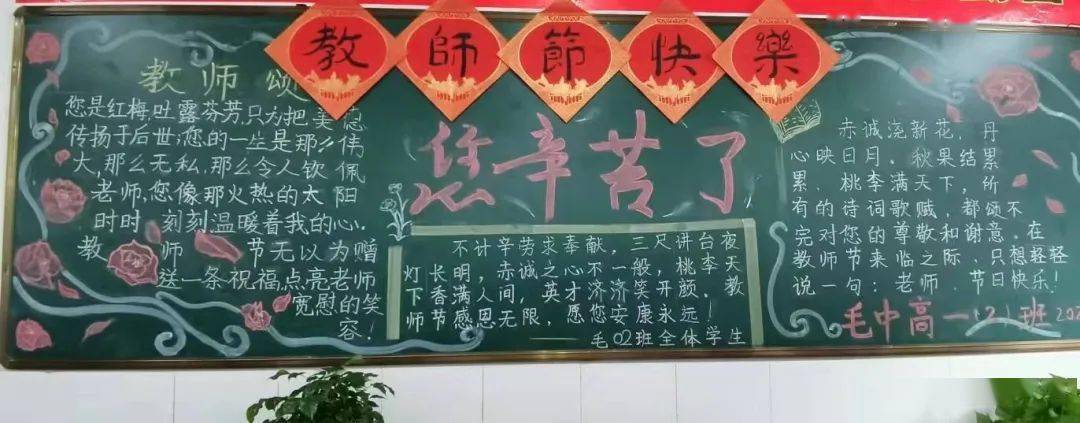 教師節快樂
教师颂
您是红梅,吐露芬芳,只为把美德
传扬于后世;您的一生是那么伟
大,那么无私,那么令人钦佩
老师,您像那火热的太阳
时时刻刻温暖着我的心.
教师节无以为赠
送一条祝福,点亮老师
宽慰的笑
容!
您辛苦了
不计辛劳求奉献，三尺讲台夜
灯长明，赤诚之心不一般，桃李天
下香满人间，英才济济笑开颜。教
师节感恩无限，愿您安康永远！
——毛02班全体学生
赤诚浇新花，丹
心映日月。秋果结累
累、桃李满天下，所
有的诗词歌贼，都颂不
完对您的尊敬和谢意。在
教师节来临之际、只想轻轻
说一句：老师、节日快乐！
毛中高一(2)班 202